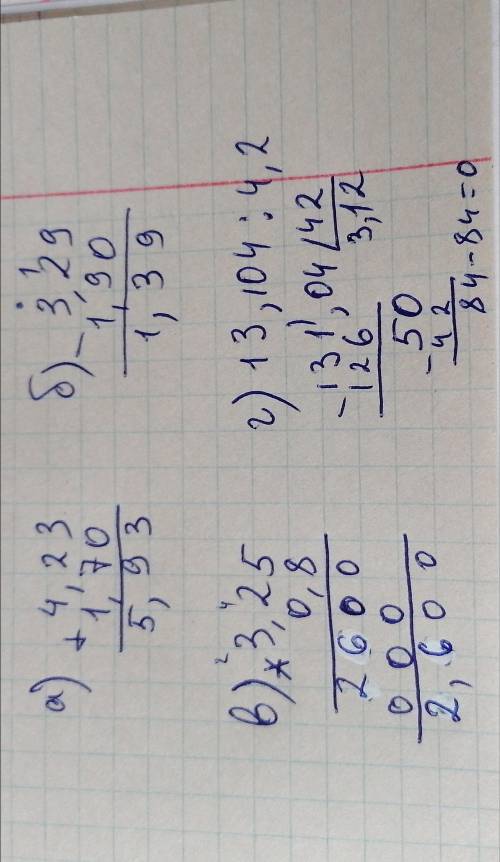 а) + 4,23
1,70
5,93
б) - 3,29
1,90
1,39
в) * 3,25
0,8
2600
000
2,600
г) 13,104 : 4,2
- 131,04 / 42
126 3,12
50
- 42
84 - 84 = 0